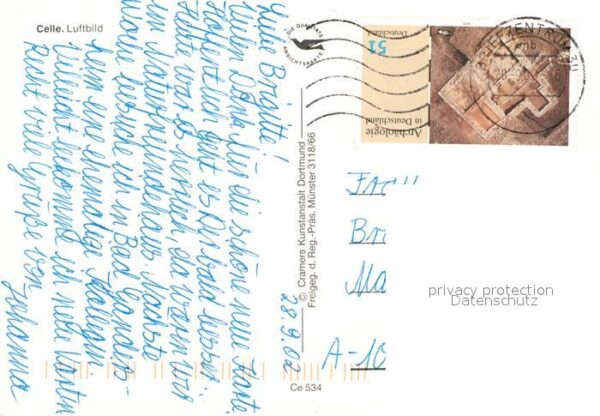 Celle. Luftbild
Liebe Brigitte!
Vielen Dank für die schöne neue Karte.
Hoffentlich geht es Dir bald besser.
Heute war es neblig, da waren wir
im Naturfreundehaus. Nächste
Woche werde ich in Bad Ganders-
heim eine ehemalige Kollegin
Vielleicht bekomme ich neue Karten
Recht viele Grüße von
Johanna
28.9.02
DIE QUALITÄTS
ANSICHTSKARTE
© Cramers Kunstanstalt Dortmund
Freigeg. d. Reg.-Präs. Münster 3118/66
Ce 534
51
Deutschland
Archäologie
in Deutschland
BRIEFZENTRUM
Fr
Br
Ma
A-10
privacy protection
Datenschutz